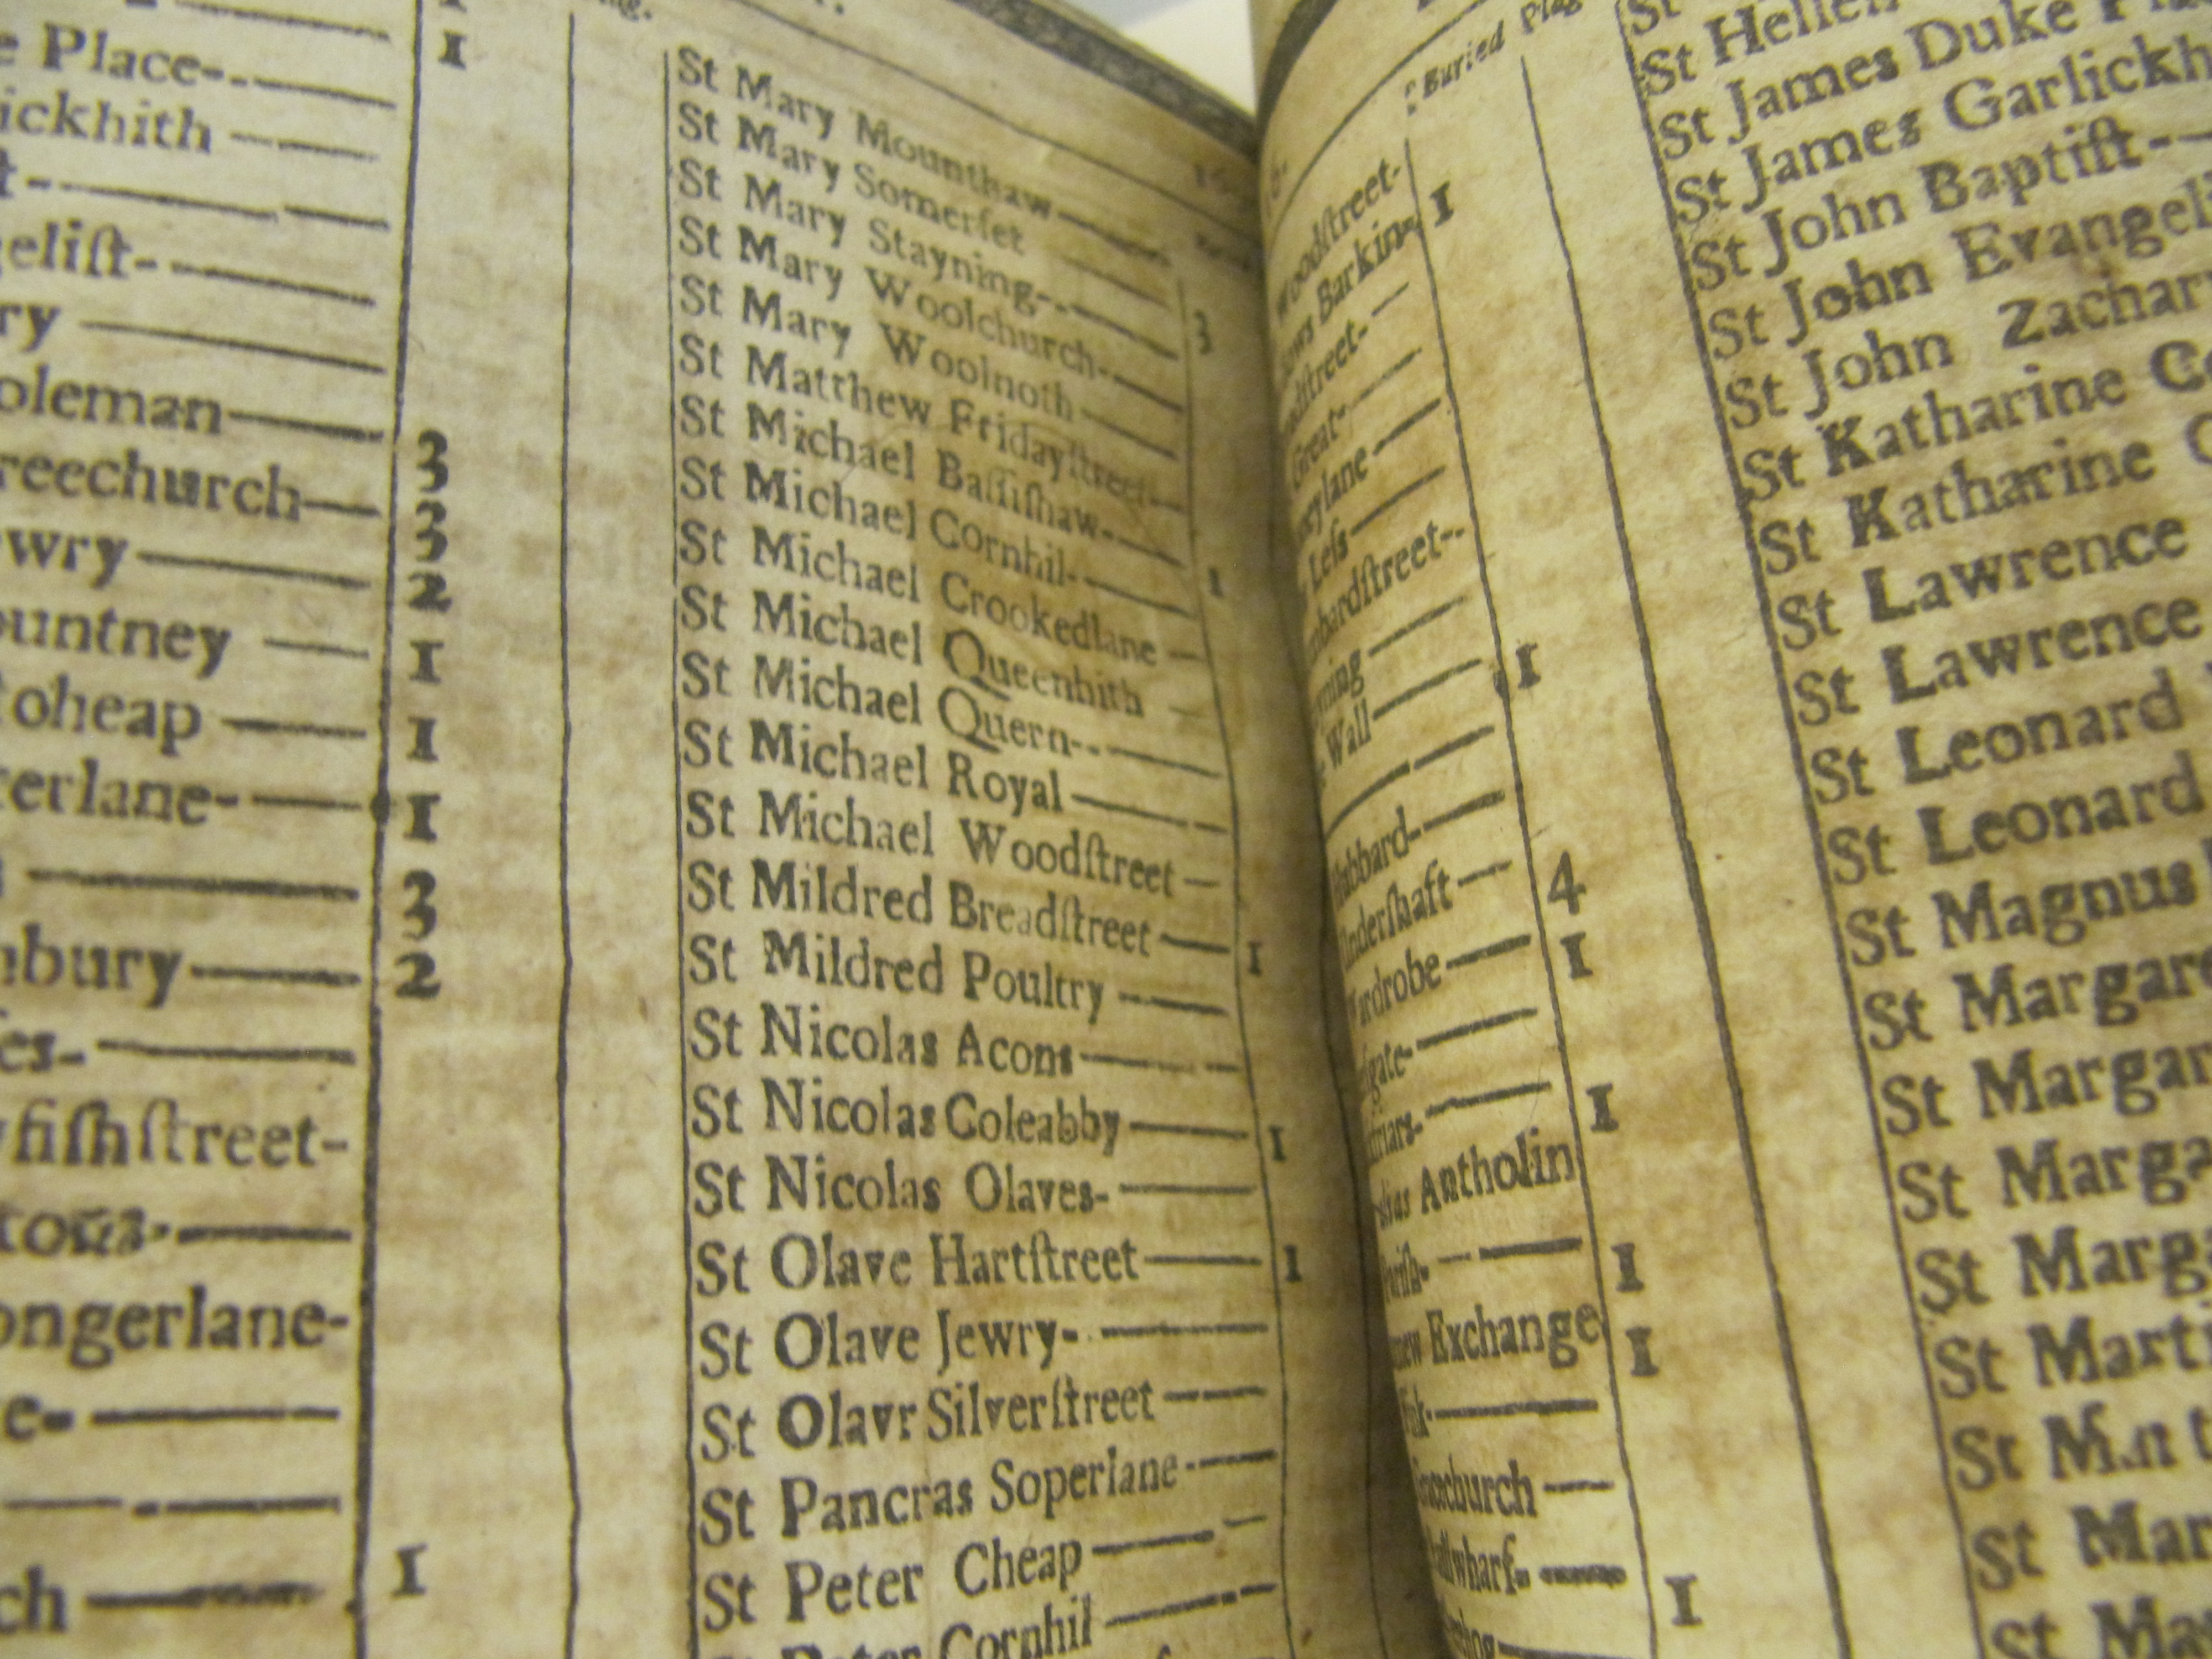 1
e Place-
1
ickhith
t-
gelist-
ry
oleman
3
reechurch
3
wry
2
ountney
1
oheap
1
erlane-
1
3
nbury
2
es-
yfiſhſtreet-
ongerlane-
e-
ch
1
St Mary Mounthaw
St Mary Somerſet
St Mary Stayning-
3
St Mary Woolchurch-
St Mary Woolnoth
St Matthew Fridayſtreet
St Michael Baſſiſhaw-
1
St Michael Cornhil-
St Michael Crookedlane
St Michael Queenhith
St Michael Quern-
St Michael Royal
St Michael Woodſtreet
St Mildred Breadſtreet
1
St Mildred Poultry
St Nicolas Acons
St Nicolas Coleabby
1
St Nicolas Olaves-
St Olave Hartſtreet
1
St Olave Jewry-
St Olavr Silverſtreet
St Pancras Soperlane-
St Peter Cheap
Cornhil
Buried Plag
Woodſtreet-
Barking
1
ſtreet-
Great-
lane
Leſs
bardſtreet-
ning
Wall
1
Hubbard-
nderſhaft
4
ardrobe
1
gate-
friars-
1
alias Antholin
Pariſh-
1
Exchange
1
church
wharf-
1
St Hellen
St James Duke
St James Garlickh
St John Baptiſt-
St John Evangeli
St John Zachar
St Katharine C
St Katharine
St Lawrence
St Lawrence
St Leonard
St Leonard
St Magnus
St Margare
St Margar
St Marga
St Marga
St Marti
St M
St Mar
St Ma